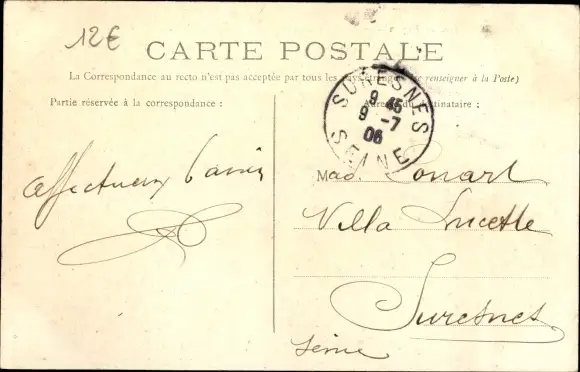 12€
CARTE POSTALE
La Correspondance au recto n'est pas acceptée par tous les pays étrangers (se renseigner à la Poste)
Partie réservée à la correspondance :
Adresse du destinataire :
SURESNES
9 45
9 -7
06
SEINE
affectueux
Mad. Conart
Villa Lucette
Suresnes
Seine